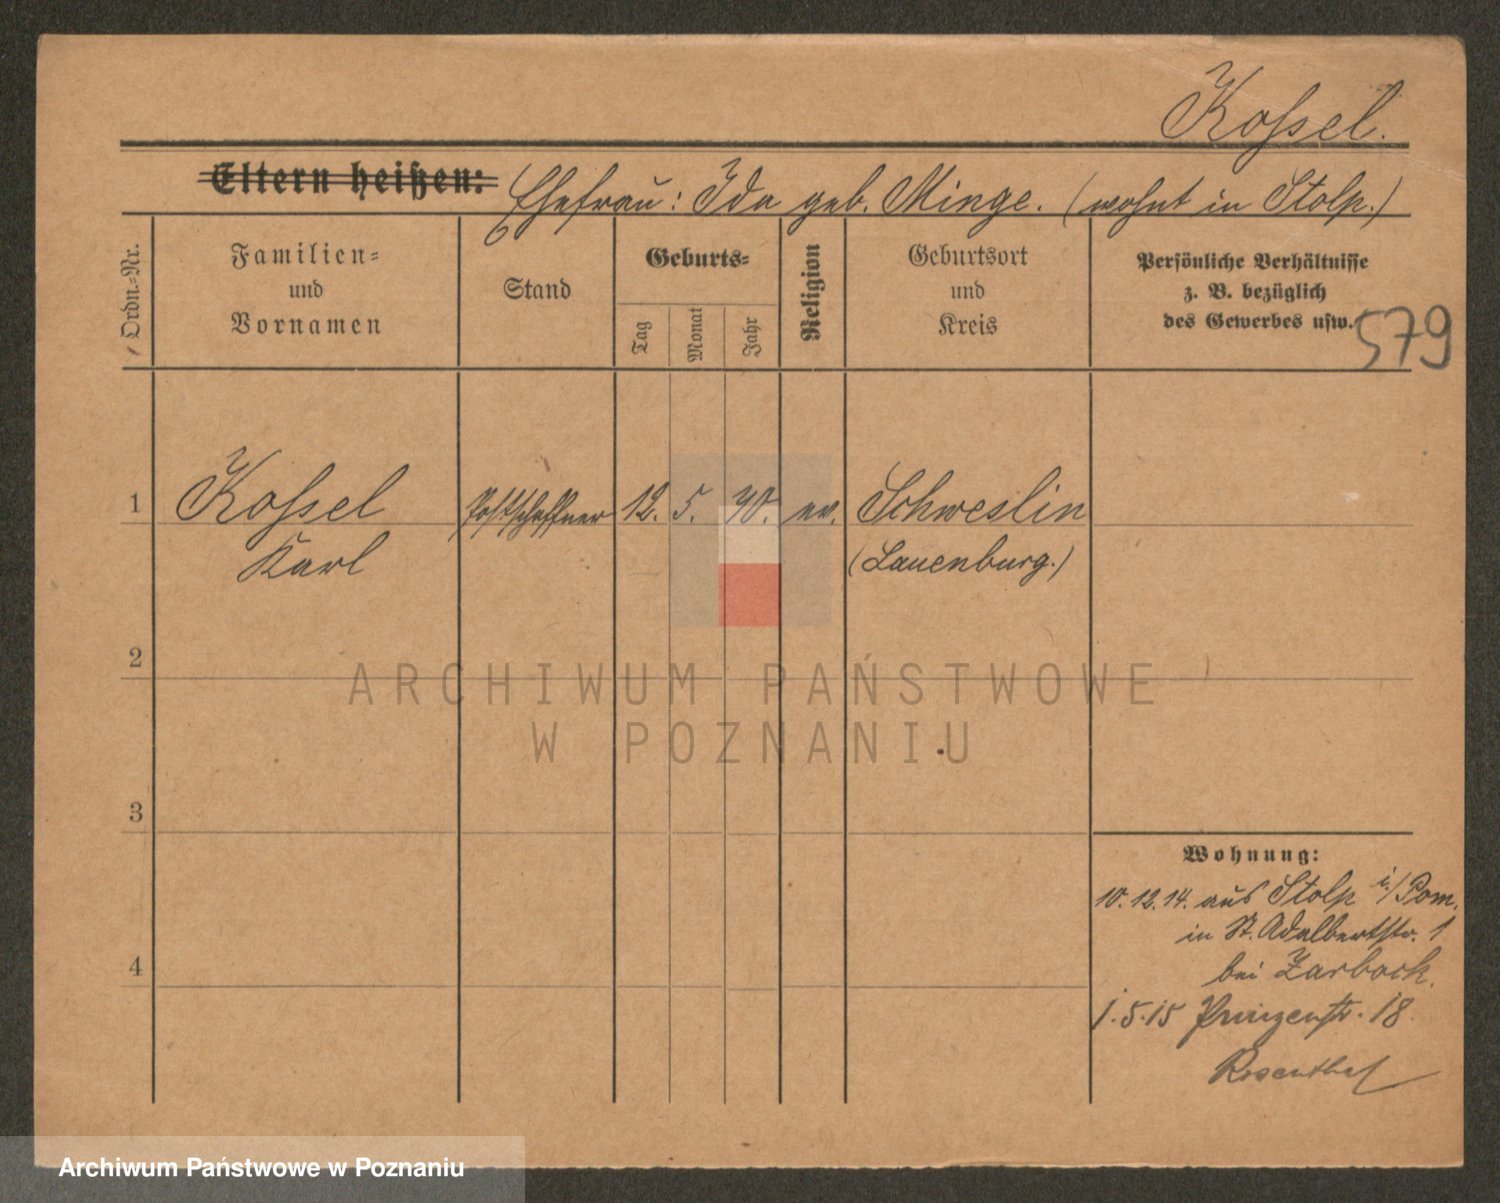 Kossel.
Eltern heißen: Ehefrau: Ida geb. Minge. (wohnt in Stolp.)
Ordn.-Nr.
Familien-
und
Vornamen
Stand
Geburts-
Tag
Monat
Jahr
Religion
Geburtsort
und
Kreis
Persönliche Verhältnisse
z. B. bezüglich
des Gewerbes usw.
579
1 Kossel Postschaffner 12. 5. 70. ev. Schweslin
Karl (Lauenburg.)
2
ARCHIWUM PAŃSTWOWE
W POZNANIU
3
Wohnung:
10.12.14. aus Stolp i/Pom.
in St. Adalbertstr. 1
4
bei Zarbock.
1.5.15 Prinzenstr. 18
Archiwum Państwowe w Poznaniu